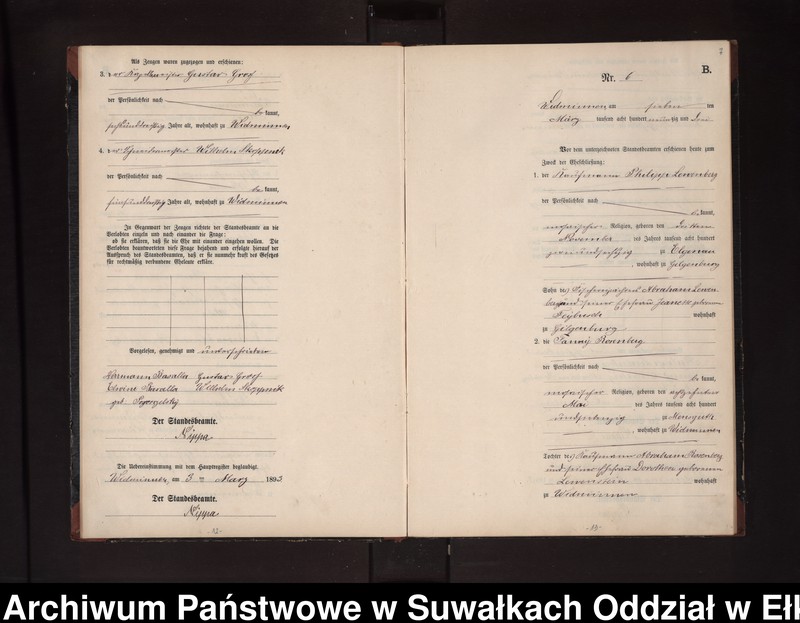 Als Zeugen waren zugezogen und erschienen:
3. der Gustav Grof
der Persönlichkeit nach
be kannt,
Jahre alt, wohnhaft zu Widminnen
4. der Wilhelm Skopnnek
der Persönlichkeit nach
be kannt,
fünfunddreißig Jahre alt, wohnhaft zu Widminnen
In Gegenwart der Zeugen richtete der Standesbeamte an die
Verlobten einzeln und nach einander die Frage:
ob sie erklären, daß sie die Ehe mit einander eingehen wollen. Die
Verlobten beantworteten diese Frage bejahend und erfolgte hierauf der
Ausspruch des Standesbeamten, daß er sie nunmehr kraft des Gesetzes
für rechtmäßig verbundene Eheleute erkläre.
Vorgelesen, genehmigt und unterschrieben
Hermann Gustav Grof
Wilhelm
geb.
Der Standesbeamte.
Nippa
Die Uebereinstimmung mit dem Hauptregister beglaubigt.
Widminnen, am 3 ten März 1893
Der Standesbeamte.
Nippa
- 12 -
B.
Nr. 6
Widminnen am sieben ten
März tausend acht hundert neunzig und drei
Vor dem unterzeichneten Standesbeamten erschienen heute zum
Zweck der Eheschließung:
1. der Kaufmann Philipp Lewenberg
der Persönlichkeit nach
be kannt,
mosaischer Religion, geboren den dritten
November des Jahres tausend acht hundert
zweiundsechzig zu
, wohnhaft zu Gilgenburg
Sohn des Abraham Lewen
berg und seiner Ehefrau geborene
wohnhaft
zu Gilgenburg
2. die Fanny Rosenberg
der Persönlichkeit nach
be kannt,
mosaischer Religion, geboren den achtzehnten
Mai des Jahres tausend acht hundert
undsiebenzig zu
, wohnhaft zu Widminnen
Tochter des Kaufmann Abraham Rosenberg
und seiner Ehefrau Dorothea geborenen
Lewenstein wohnhaft
zu Widminnen
- 13 -
Archiwum Państwowe w Suwałkach Oddział w Ełk